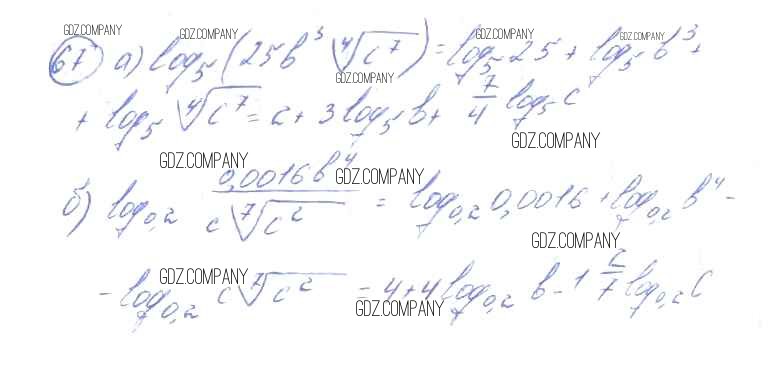 GDZ.COMPANY GDZ.COMPANY GDZ.COMPANY GDZ.COMPANY
67 а) log₅(25b³ ⁴√c⁷) = log₅25 + log₅b³ +
GDZ.COMPANY
+ log₅ ⁴√c⁷ = 2 + 3log₅b + 7/4 log₅c
GDZ.COMPANY GDZ.COMPANY
б) log₀,₂ 0,0016b⁴ / c ⁷√c² = log₀,₂0,0016 + log₀,₂b⁴ -
GDZ.COMPANY
GDZ.COMPANY
- log₀,₂ c ⁷√c² = 4 + 4log₀,₂ b - 1 2/7 log₀,₂c
GDZ.COMPANY
GDZ.COMPANY